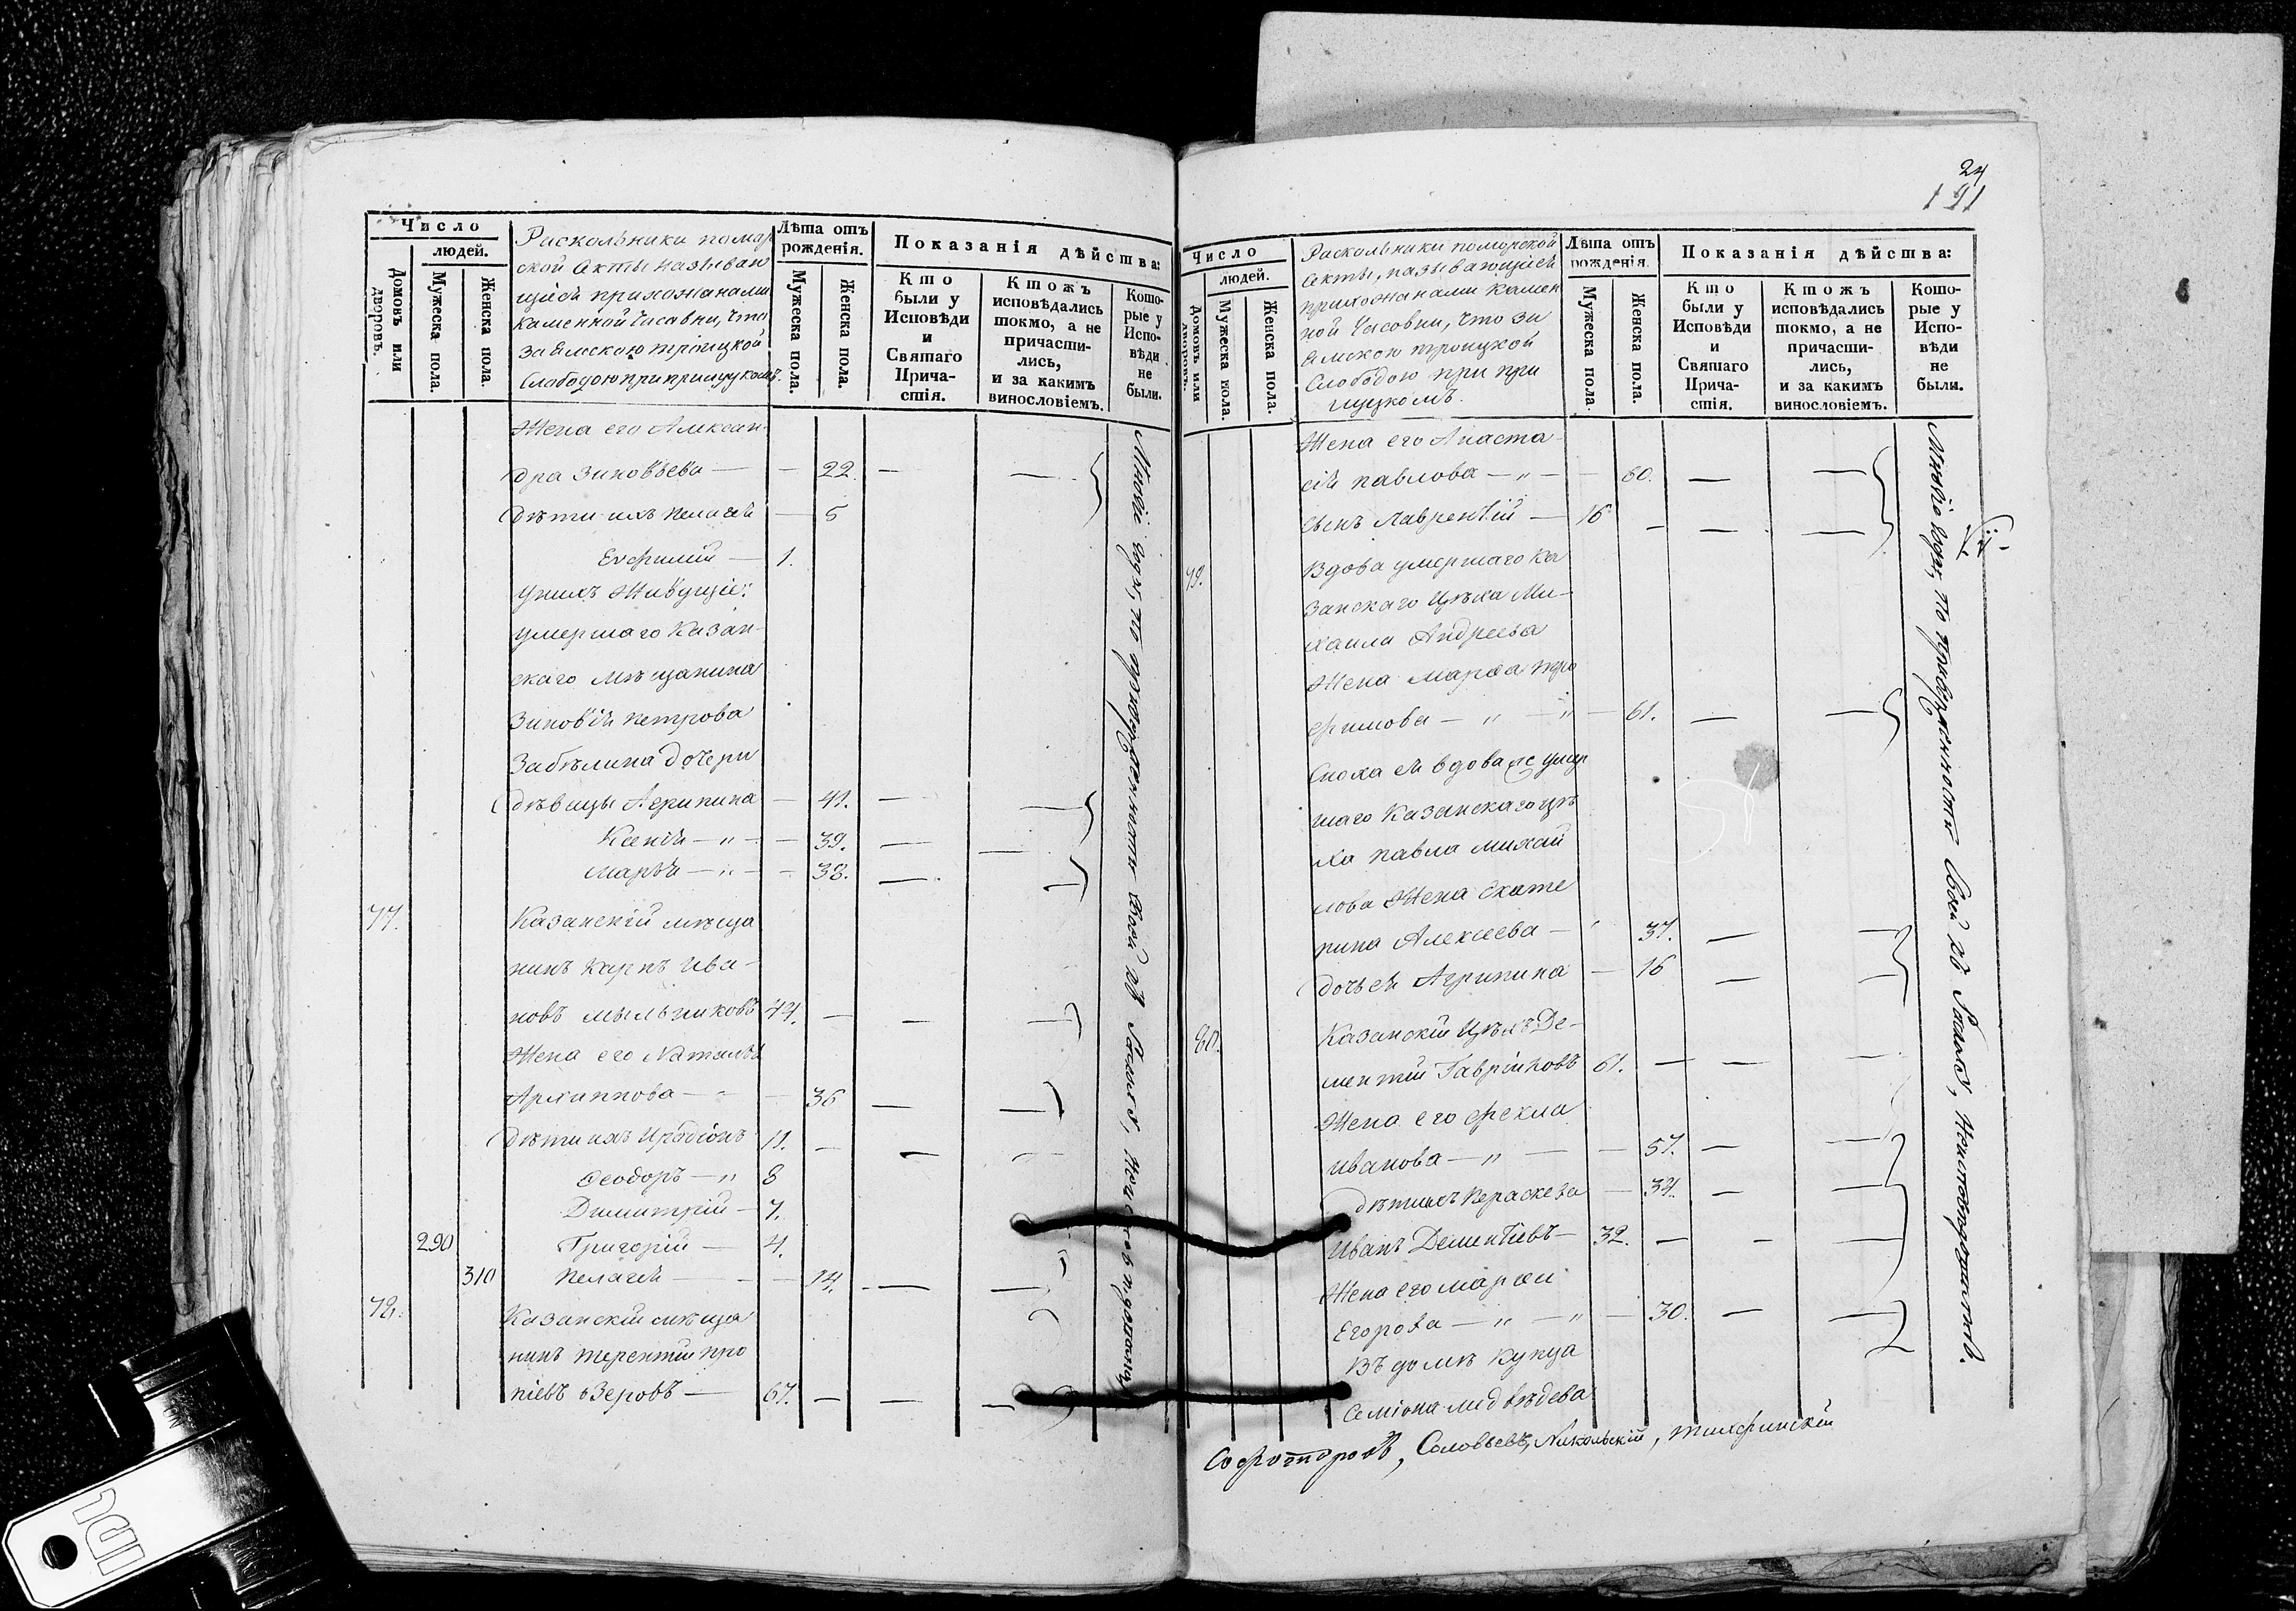 Число
людей.
Домовъ или дворовъ.
Мужеска пола.
Женска пола.
Раскольники помор
ской секты называю
щіеся прихожанами
каменной Часовни, что
за Ямскою троицкой
Слободою при
Лѣта отъ рожденія.
Мужеска пола.
Женска пола.
Показанія дѣйства:
Кто были у Исповѣди и Святаго Причастія.
Ктожъ исповѣдались токмо, а не причастились, и за какимъ винословіемъ.
Которые у Исповѣди не были.
Жена его Алексан-
дра Зиновьева — — 22. —
Дѣти ихъ Пелагея — 5
Евфимій — 1.
У нихъ живущіе:
умершаго Казан-
скаго мѣщанина
Зиновія Петрова
Забѣлина дочери
дѣвицы Агрипина — 41. —
Ксенія — „ — 39. —
Марья — „ — 38. —
77. Казанскій мѣща
нинъ Карпъ Ива-
новъ Мыльниковъ 44. —
Жена его Наталья
Архиппова — 36 —
Дѣти ихъ Иродіонъ 11. —
Ѳеодоръ — „ 8
Димитрій — 7.
290 Григорій — 4.
310 Пелагея — — 14. —
78. Казанскій мѣща
нинъ Терентій Про
піевъ Озеровъ — 67. —
Многіе годы, по приверженности своей къ расколу,
24
191
Число
людей.
Домовъ или дворовъ.
Мужеска пола.
Женска пола.
Раскольники поморской
секты, называющіеся
прихожанами камен
ной Часовни, что за
Ямскою троицкой
Слободою при при
Лѣта отъ рожденія.
Мужеска пола.
Женска пола.
Показанія дѣйства:
Кто были у Исповѣди и Святаго Причастія.
Ктожъ исповѣдались токмо, а не причастились, и за какимъ винословіемъ.
Которые у Исповѣди не были.
Жена его Анаста-
сія Павлова — „ — 60. —
Сынъ Лаврентій — 16 —
79. Вдова умершаго Ка
занскаго Цѣха Ми-
хаила Андреева
Жена Марѳа Тро
фимова — „ — „ — 61. —
Сноха ея вдова же умер
шаго Казанскаго цѣ
ха Павла Михай
лова Жена Екате
рина Алексеева — 37. —
дочь ея Агрипина — 16 —
80. Казанскій Цѣхъ Де-
ментій Гавриловъ 61. —
Жена его Фекла
Иванова — „ — 57. —
дѣти ихъ — 34. —
Иванъ Дементіевъ — 32. —
Жена его Марѳа
Егорова — „ — „ — 30. —
Въ домѣ Купца
Семіона Медвѣдева
Многіе годы, по приверженности своей къ расколу,
Соловьевъ, Никольскій,